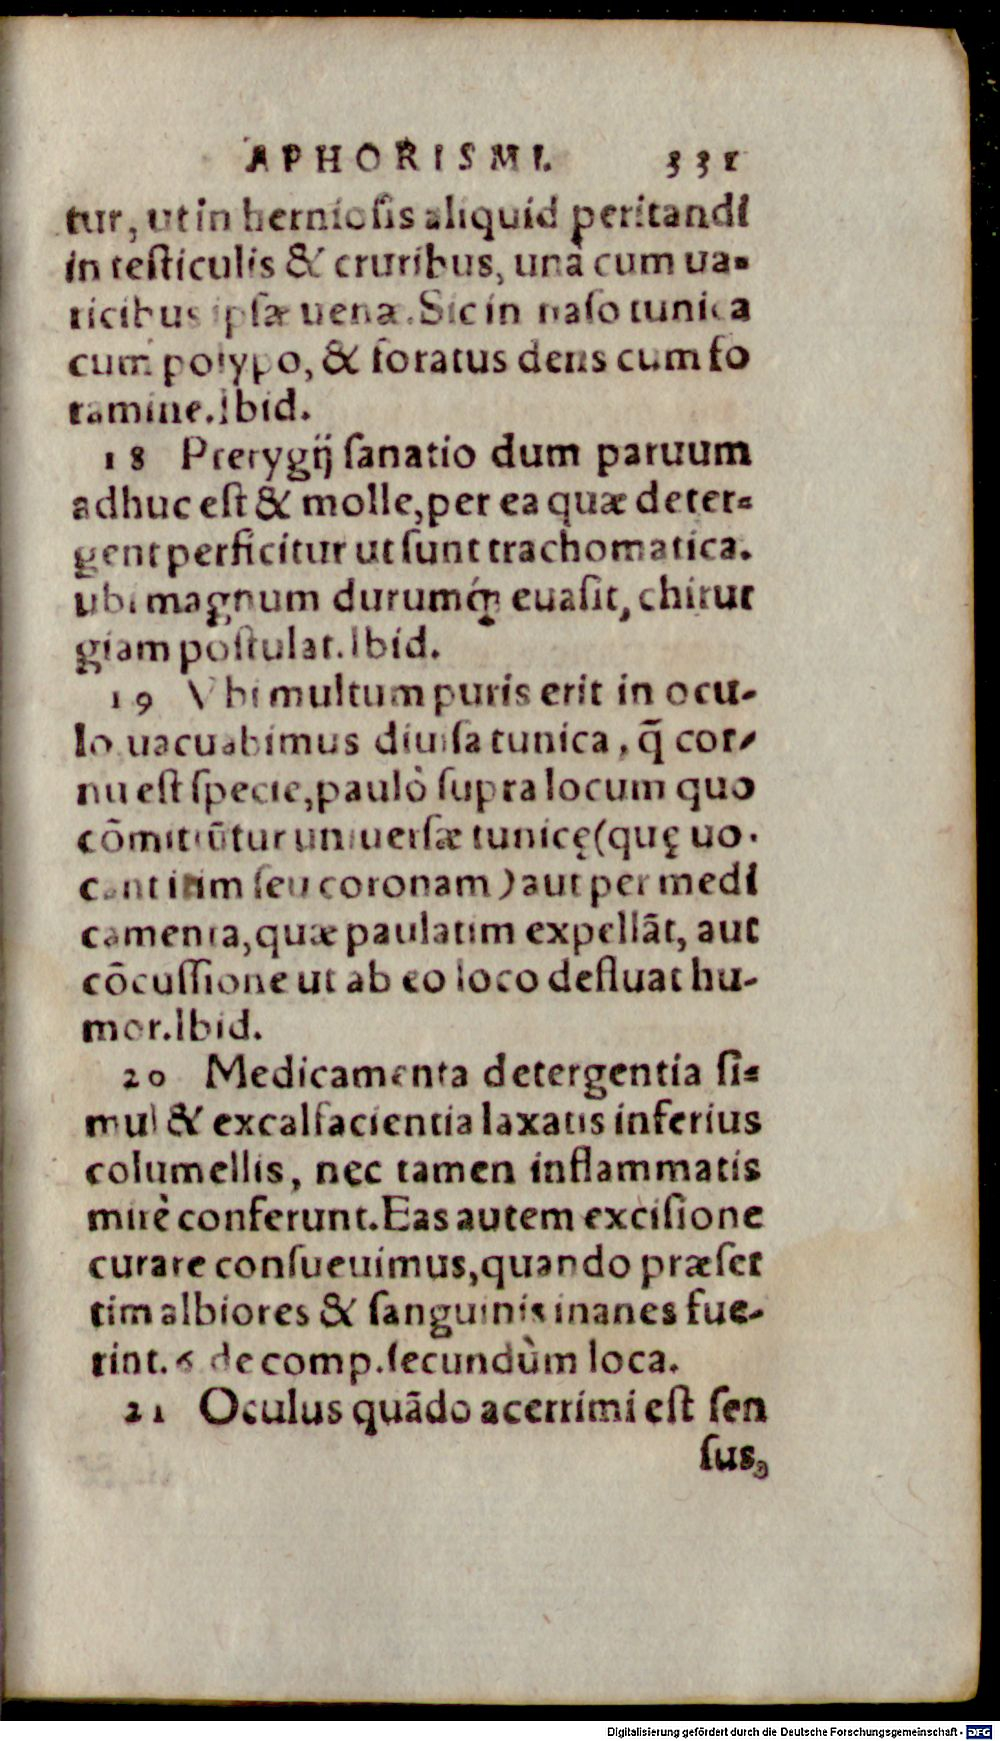 APHORISMI. 331
tur, ut in herniosis aliquid peritandi
in testiculis & cruribus, unà cum ua-
ricibus ipsæ uenæ. Sic in naso tunica
cum polypo, & foratus dens cum fo
ramine. Ibid.
18 Pterygij sanatio dum paruum
adhuc est & molle, per ea quæ deter-
gent perficitur ut sunt trachomatica.
ubi magnum durumq́; euasit, chirur
giam postulat. Ibid.
19 Vbi multum puris erit in ocu-
lo uacuabimus diuisa tunica, q̃ cor-
nu est specie, paulò supra locum quo
cõmittũtur uniuersæ tunicę (quę uo-
cant irim seu coronam) aut per medi
camenta, quæ paulatim expellãt, aut
cõcussione ut ab eo loco defluat hu-
mor. Ibid.
20 Medicamenta detergentia si-
mul & excalfacientia laxatis inferius
columellis, nec tamen inflammatis
mirè conferunt. Eas autem excisione
curare consueuimus, quando præser
tim albiores & sanguinis inanes fue-
rint. 6 de comp. secundùm loca.
21 Oculus quãdo acerrimi est sen
sus,
Digitalisierung gefördert durch die Deutsche Forschungsgemeinschaft - DFG